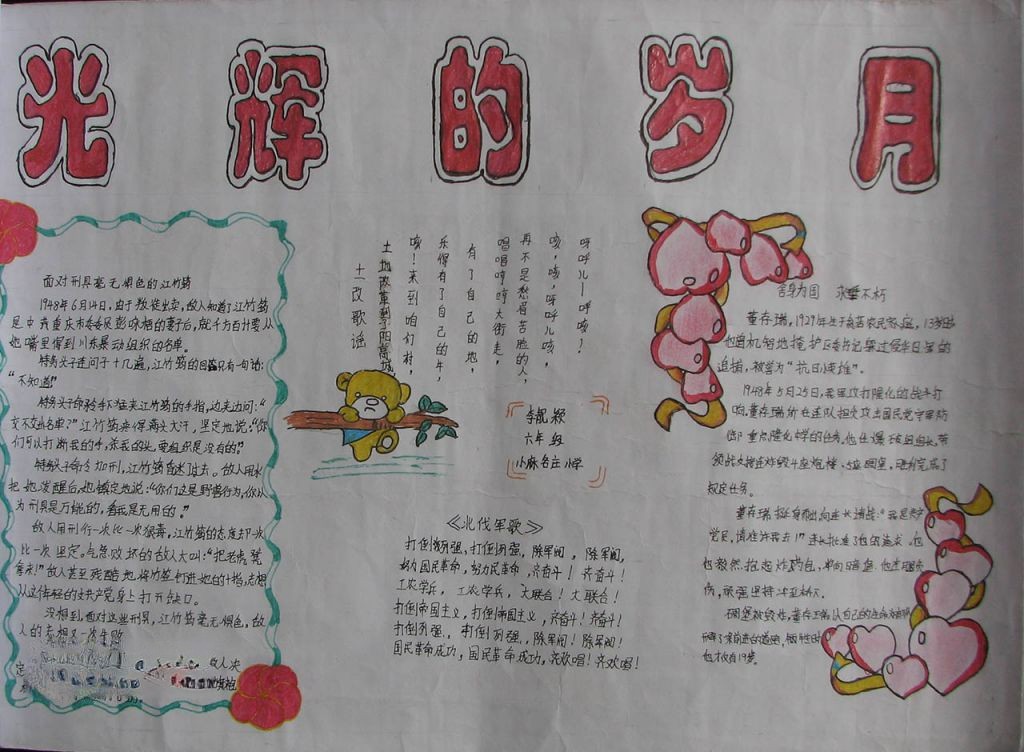 光辉的岁月
面对刑具毫无惧色的江竹筠
1948年6月14日，由于叛徒出卖，敌人知道了江竹筠
是中共重庆市委委员彭咏梧的妻子后，就千方百计要从
她嘴里得到川东暴动组织的名单。
特务头子连问了十几遍，江竹筠的回答只有一句话：
“不知道！”
特务头子命令打手下猛夹江竹筠的手指，边夹边问：“
交不交出名单？”江竹筠疼得满头大汗，坚定地说：“你
们可以打断我的手，杀我的头，要组织是没有的。”
特务头子命令加刑，江竹筠昏迷过去。敌人用水
把她泼醒后，她镇定地说：“你们这是野兽行为，你以
为刑具是万能的，看我是无用的。”
敌人用刑一次比一次狠毒，江竹筠的态度却一次
比一次坚定。气急败坏的敌人大叫：“把老虎凳
拿来！”敌人甚至残酷地将竹签钉进她的十指，志想
从这年轻的女共产党身上打开缺口。
没想到，面对这些刑具，江竹筠毫无惧色，敌
人的
土改歌谣
土地改革到了阳高城
咳！来到咱们村，
乐得有了自己的牛，
有了自己的地，
唱唱哼哼大街走，
再不是愁眉苦脸的人，
咳，咳，呀呼儿咳，
呀呼儿——呼咳！
李靓颖
六年级
小麻各庄小学
《北伐军歌》
打倒列强，打倒列强，除军阀，除军阀，
努力国民革命，努力民革命，齐奋斗！齐奋斗！
工农学兵，工农学兵，大联合！大联合！
打倒帝国主义，打倒帝国主义，齐奋斗！齐奋斗！
打倒列强，打倒列强，除军阀！除军阀！
国民革命成功，国民革命成功，齐欢唱！齐欢唱！
舍身为国 永垂不朽
董存瑞，1929年生于贫苦农民家庭，13岁时
他曾机智地掩护区委书记躲过侵华日军的
追捕，被誉为“抗日英雄”。
1948年5月25日，我军攻打隆化的战斗打
响，董存瑞所在连队担负攻击国民党守军防
御重点隆化中学的任务。他任爆破组组长，带
领战友接连炸毁4座炮楼、5座碉堡，顺利完成了
规定任务。
董存瑞挺身而出向连长请战：“我是共产
党员，请准许我去！”连长批准了他的请求，他
毅然抱起炸药包，冲向暗堡
伤，顽强坚持
碉堡被炸毁，董存瑞以自己的生命
他才仅有19岁。